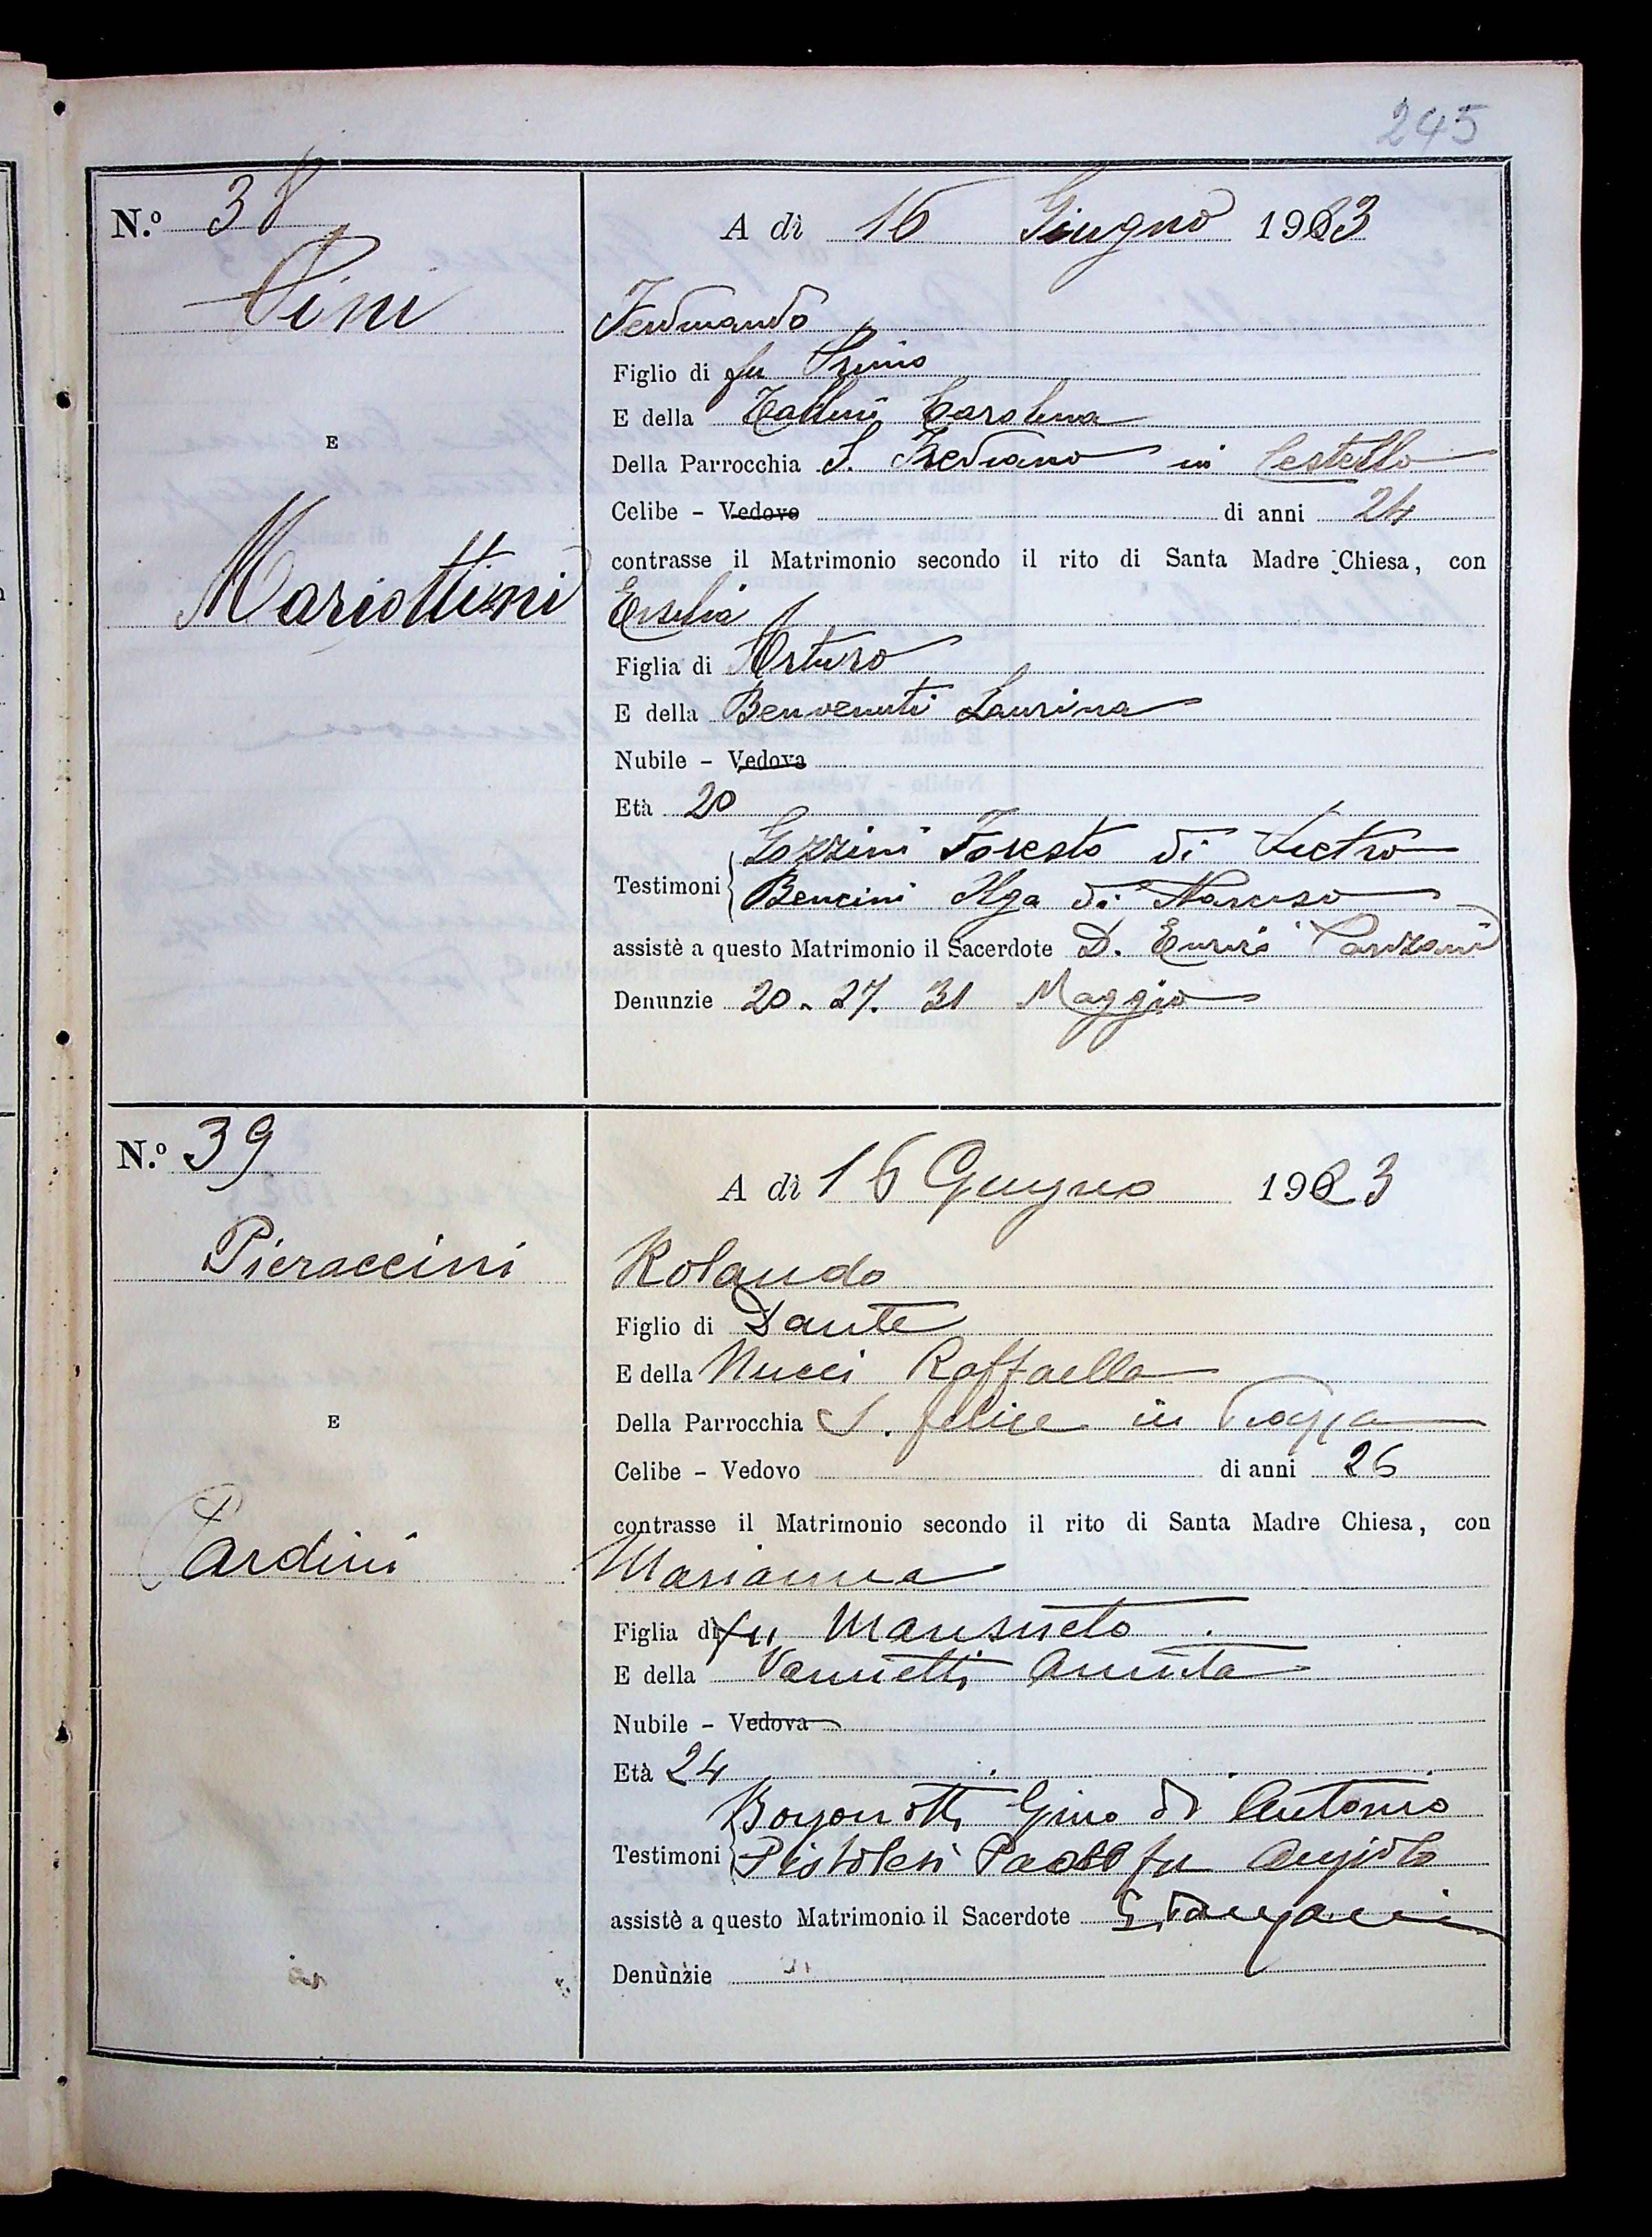 245
N.º 38
A dì 16 Giugno 1923
Pini
Ferdinando
Figlio di fu Primo
E della Carolina
E
Della Parrocchia S. Frediano in Cestello
Celibe - Vedovo di anni 24
contrasse il Matrimonio secondo il rito di Santa Madre Chiesa, con
Mariottini
Ersilia
Figlia di Arturo
E della Benvenuti Laurina
Nubile - Vedova
Età 20
Gozzini Foresto di Pietro
Testimoni
Bencini Olga di Narciso
assistè a questo Matrimonio il Sacerdote D. Enrico
Denunzie 20. 27. 31 Maggio
N.º 39
A dì 16 Giugno 1923
Pieraccini
Rolando
Figlio di Dante
E della Nucci Raffaella
E
Della Parrocchia S. Felice in Piazza
Celibe - Vedovo di anni 26
contrasse il Matrimonio secondo il rito di Santa Madre Chiesa, con
Pardini
Marianna
Figlia di fu Mansueto
E della Vannetti Annita
Nubile - Vedova
Età 24
Gino di Antonio
Testimoni
Pistolesi Paolo fu Angiolo
assistè a questo Matrimonio il Sacerdote
Denunzie